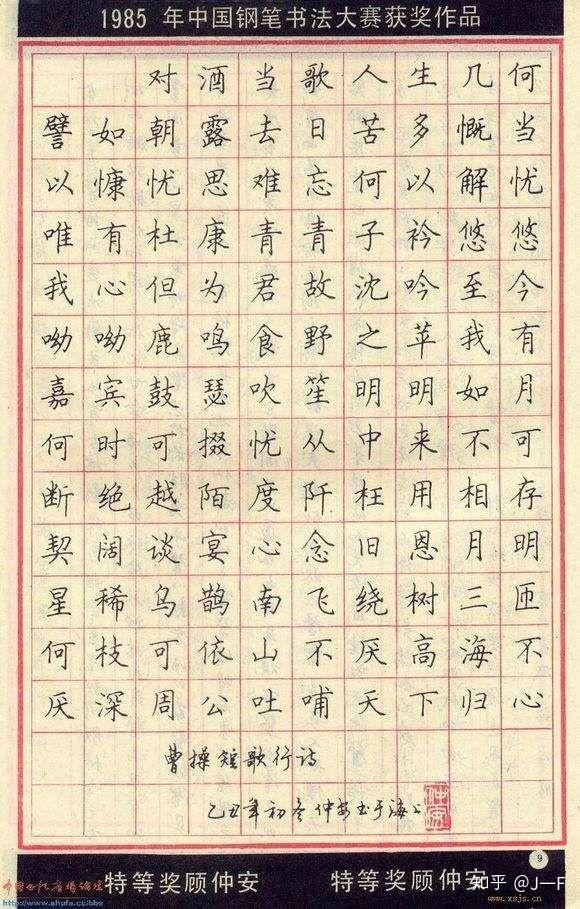 1985 年中国钢笔书法大赛获奖作品
对酒当歌人生几何
譬如朝露去日苦多慨当
以慷忧思难忘何以解忧
唯有杜康青青子衿悠悠
我心但为君故沈吟至今
呦呦鹿鸣食野之苹我有
嘉宾鼓瑟吹笙明明如月
何时可掇忧从中来不可
断绝越陌度阡枉用相存
契阔谈宴心念旧恩月明
星稀乌鹊南飞绕树三匝
何枝可依山不厌高海不
厌深周公吐哺天下归心
曹操短歌行诗
乙丑年初冬仲安书于海上
仲安
9
特等奖顾仲安 特等奖顾仲安
知乎 @J—F
www.xsjs.cn
http://www.shufa.cc/bbs